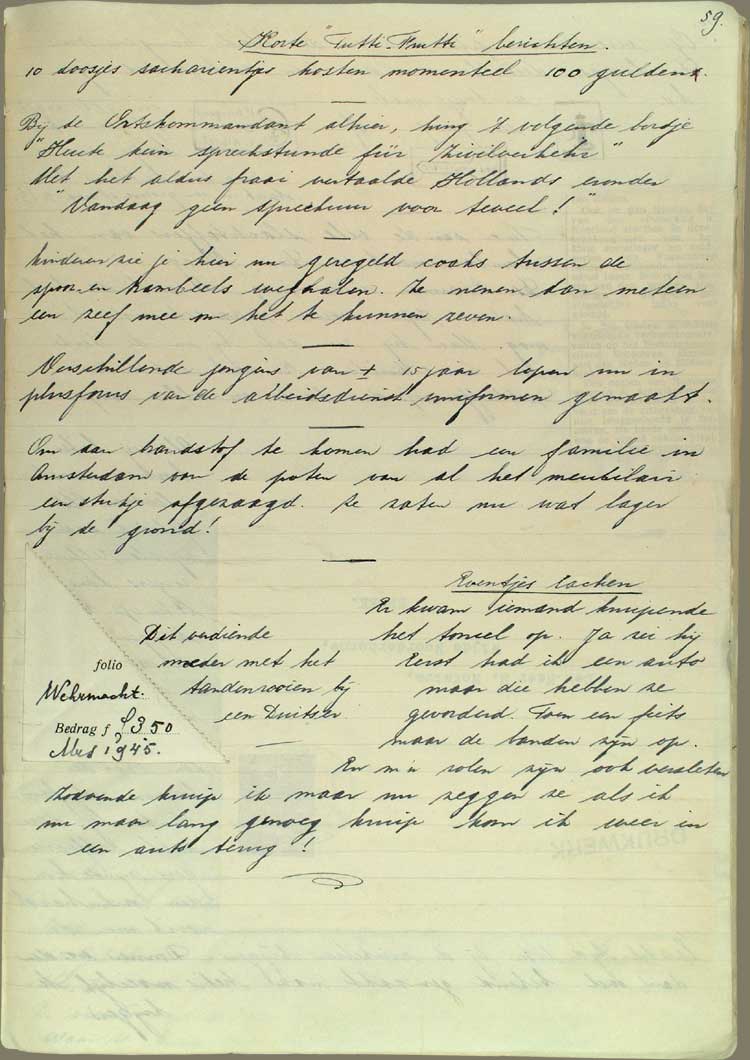 59.
Korte "Tutti-Frutti" berichten.
10 doosjes sacharientjes kosten momenteel 100 gulden.
Bij de Ortskommandant alhier, hing 't volgende bordje
"Heute kein sprechstunde für Zivilverkehr"
Met het aldus fraai vertaalde Hollands eronder
"Vandaag geen spreekuur voor teveel!"
Kinderen zie je hier nu geregeld cooks tussen de
spoor- en trambeels weghalen. Ze nemen dan meteen
een zeef mee om het te kunnen zeven.
Verschillende jongens van ± 15 jaar lopen nu in
plusfours van de arbeidsdienst uniformen gemaakt.
Om aan brandstof te komen had een familie in
Amsterdam van de poten van al het meubilair
een stukje afgezaagd. Ze zaten nu wat lager
bij de grond!
Dit verdiende
moeder met het
tandenrooien bij
een Duitser
folio
Wehrmacht.
Bedrag f 3 50
Mei 1945.
Eventjes lachen
Er kwam iemand kruipende
het toneel op. Ja zei hij
Eerst had ik een auto
maar die hebben ze
gevorderd. Toen een fiets
maar de banden zijn op.
En m'n zolen zijn ook versleten
Zodoende kruip ik maar nu zeggen ze als ik
nu maar lang genoeg kruip kom ik weer in
een auto terug!